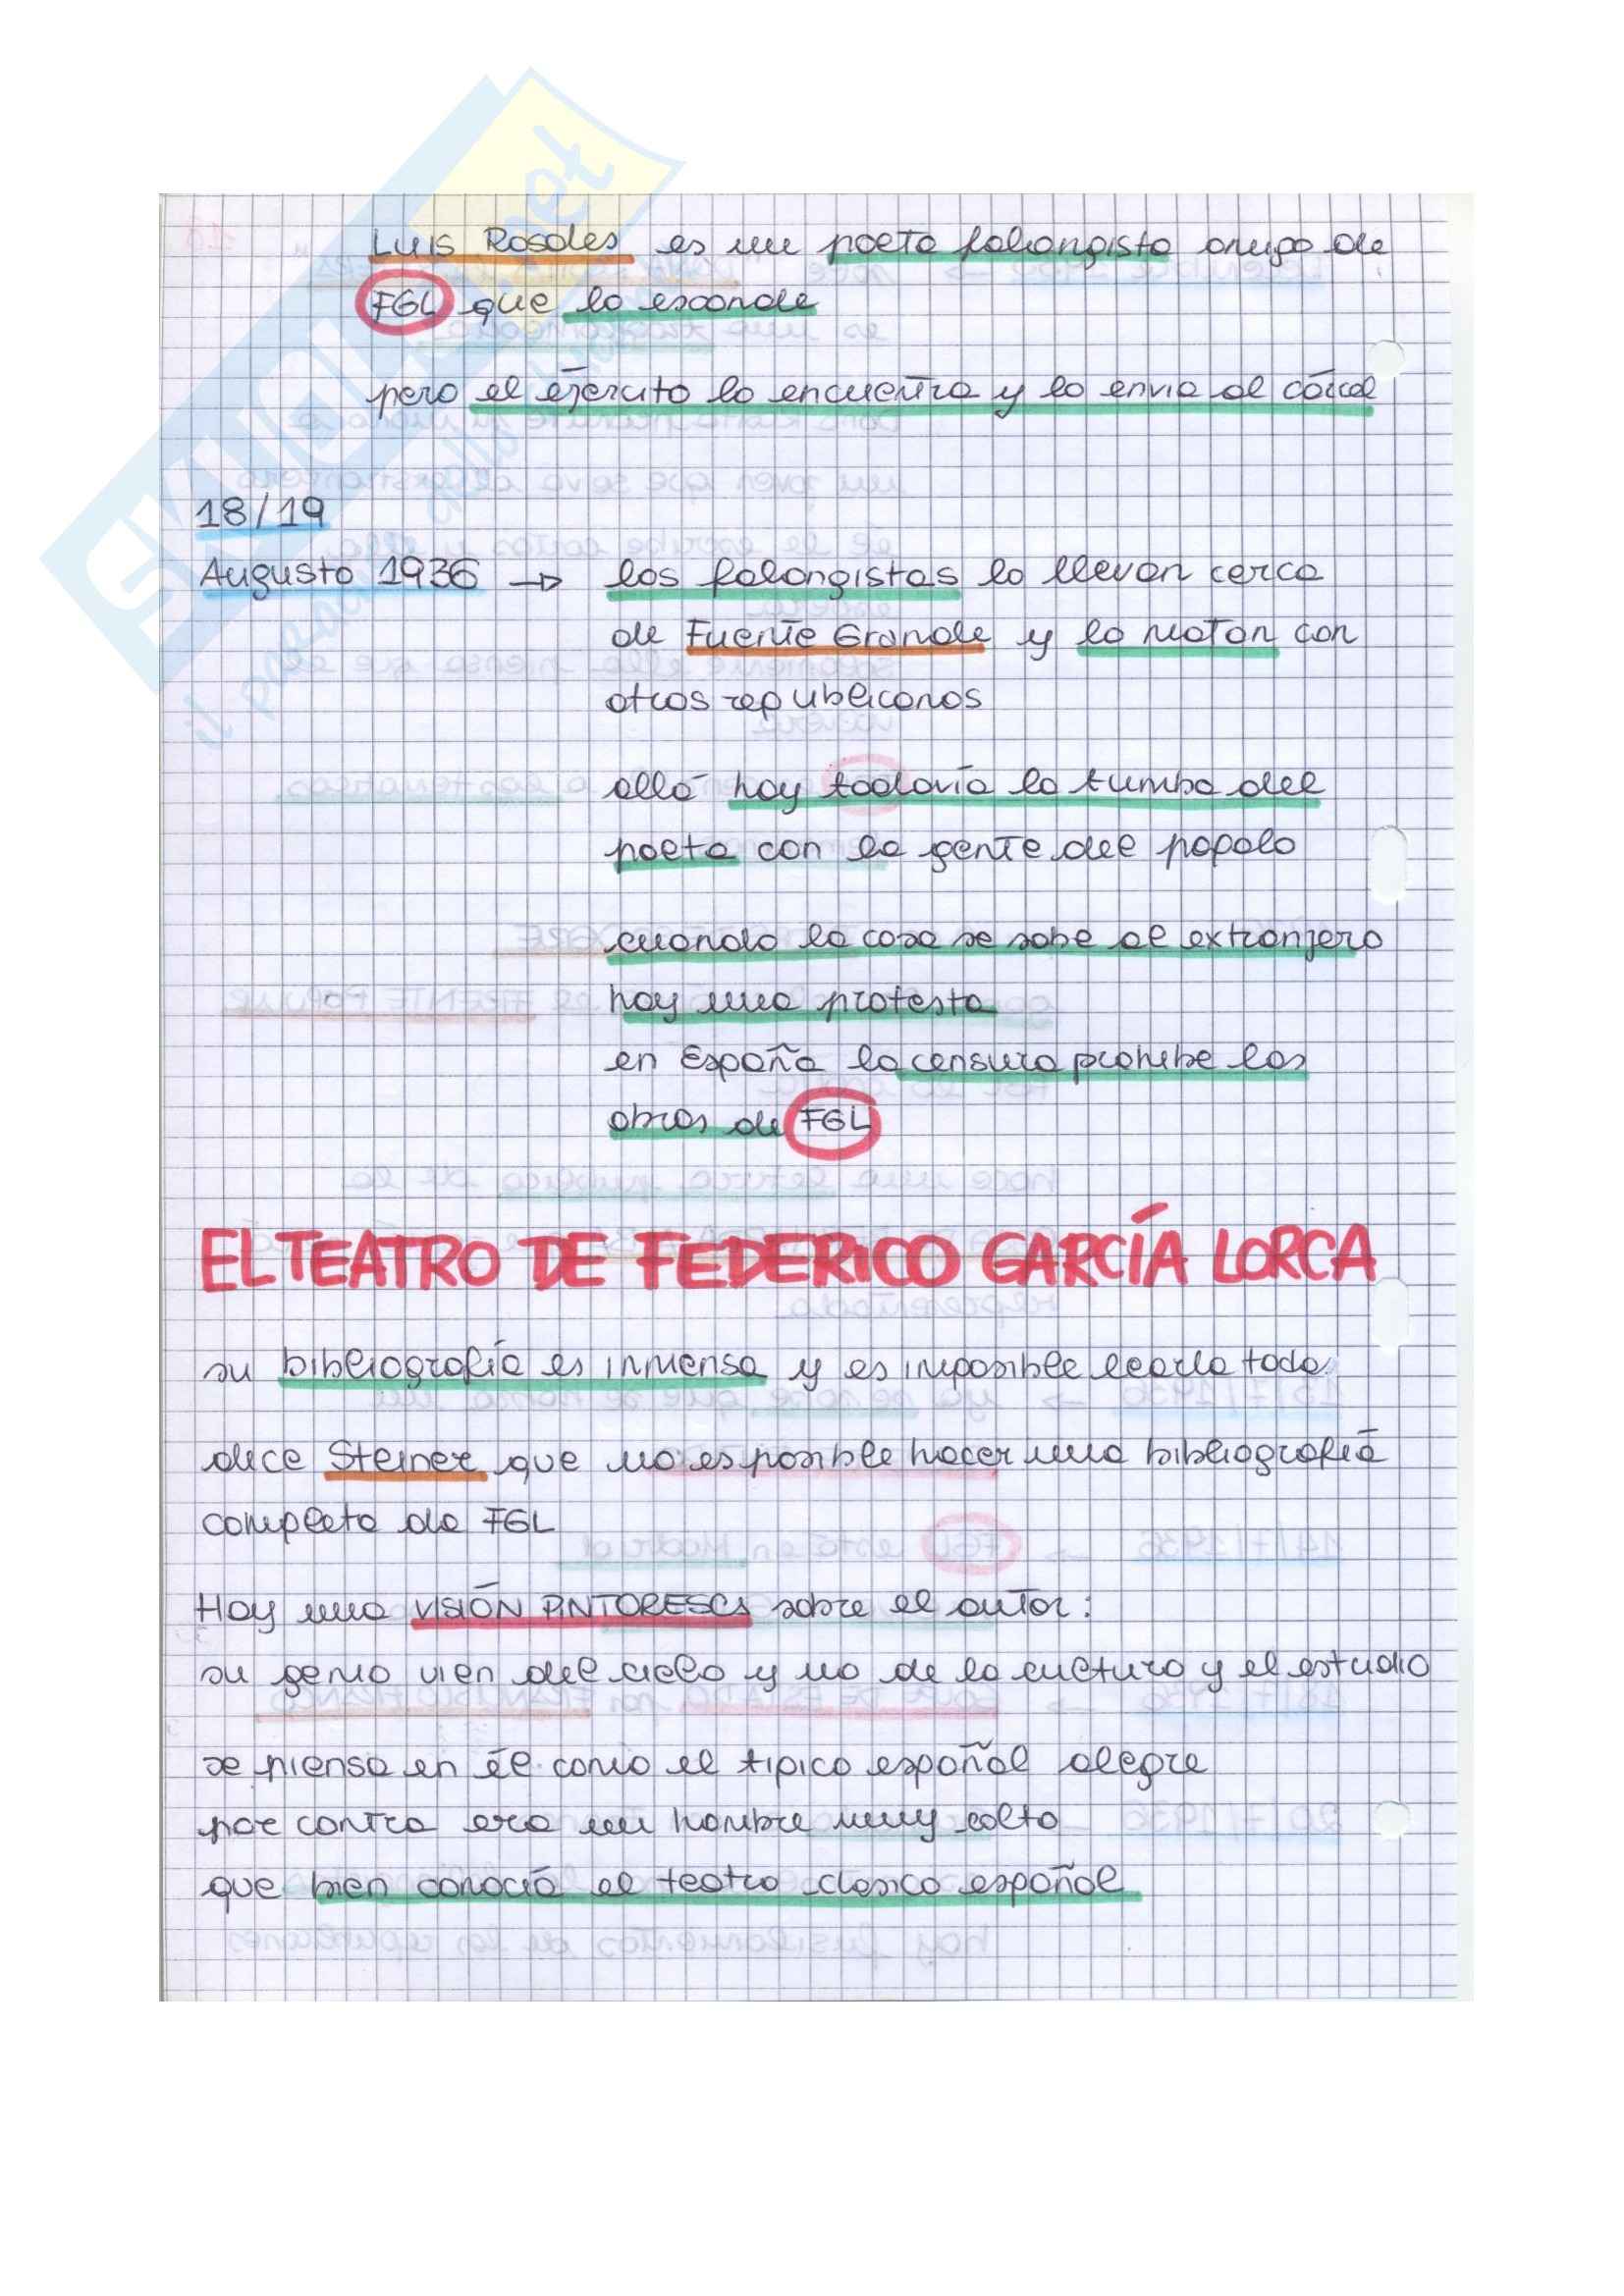 Luis Rosales es un poeta falangista amigo de
FGL que lo esconde
pero el ejército lo encuentra y lo envia al cárcel
18/19
Augusto 1936 → los falangistas lo llevan cerca
de Fuente Grande y lo matan con
otros republicanos
allá hay todavía la tumba del
poeta con la gente del popolo
cuando la cosa se sabe al extranjero
hay una protesta
en España la censura prohibe las
obras de FGL
EL TEATRO DE FEDERICO GARCÍA LORCA
su bibliografía es inmensa y es imposible learla toda
dice Steiner que no es posible hacer una bibliografiá
completa de FGL
Hay una VISIÓN PINTORESCA sobre el autor:
su genio vien del cielo y no de la cultura y el estudio
se piensa en él como el tipico español alegre
por contra era un hombre muy colto
que bien conociá el teatro clasico español
SKUOLA.net